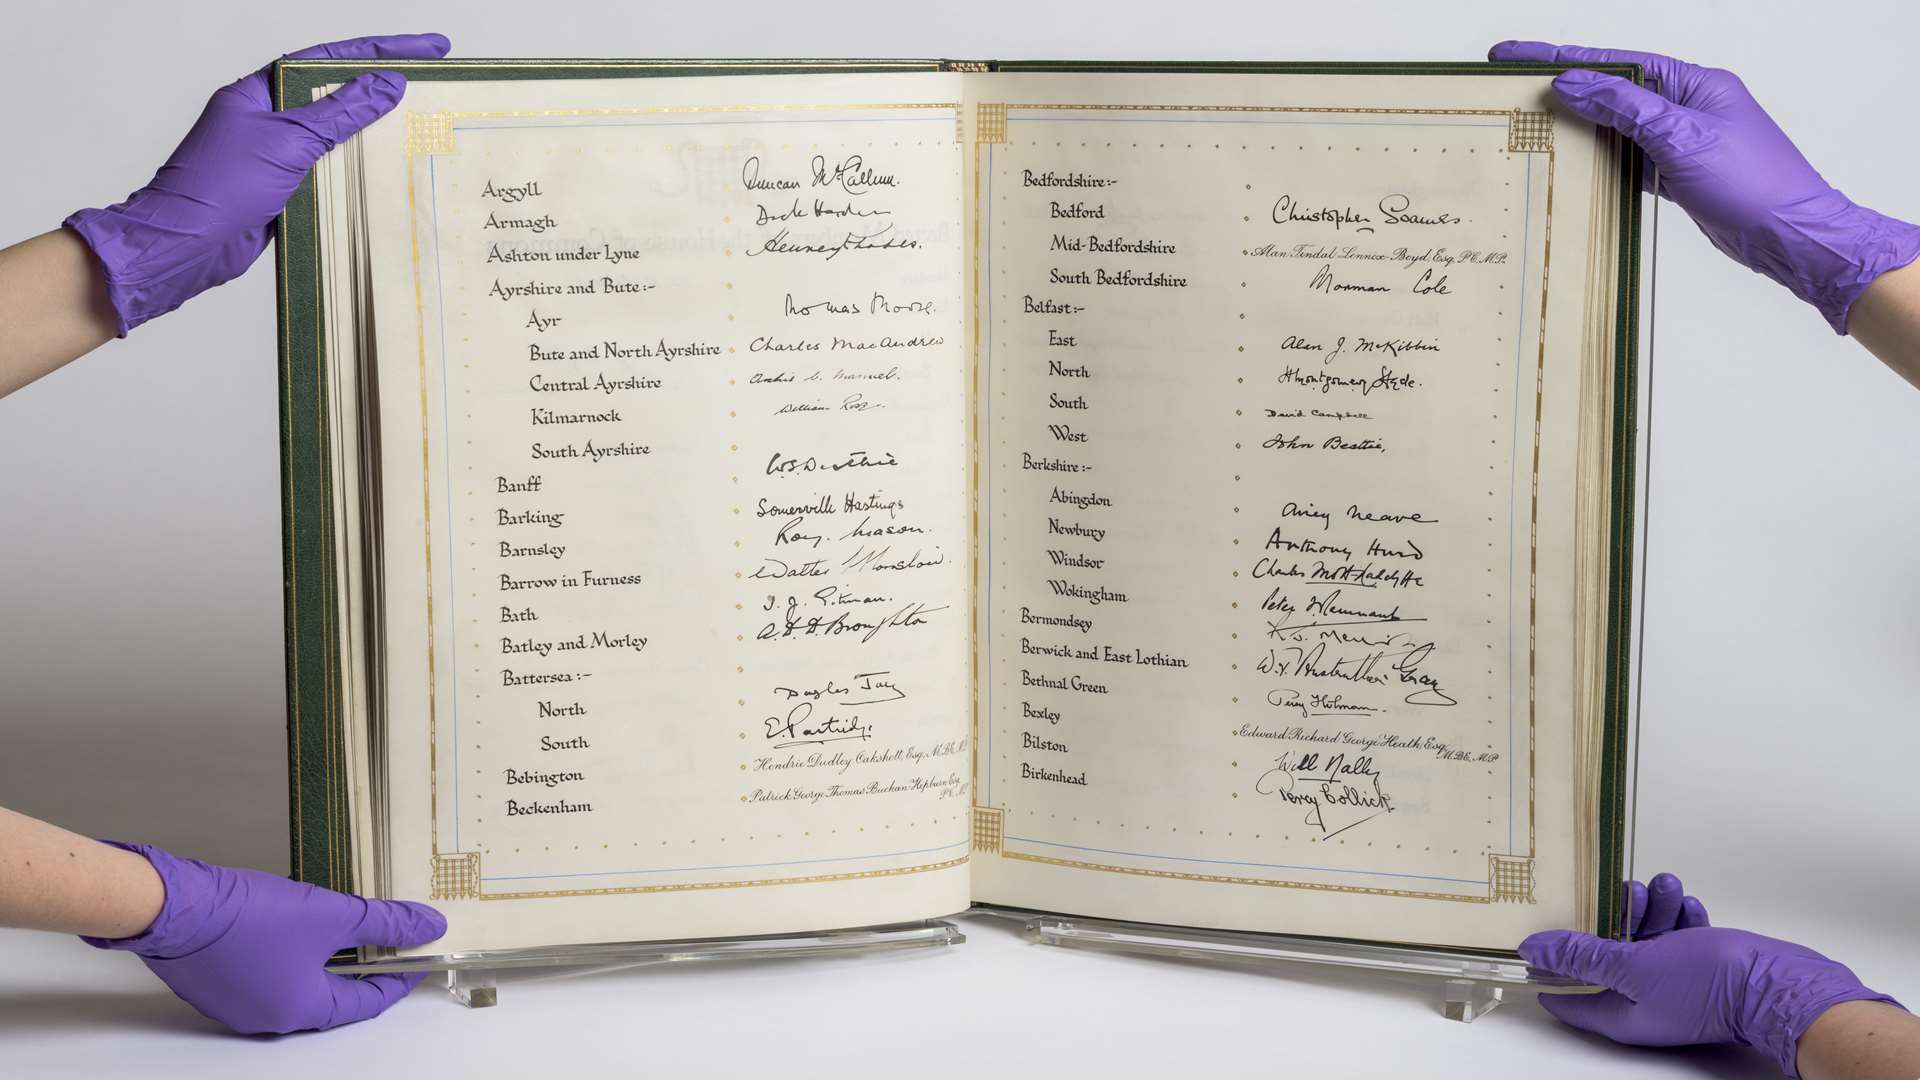 Argyll Duncan McCallum.
Armagh Dick Harden
Ashton under Lyne Hervey Rhodes.
Ayrshire and Bute:-
Ayr Thomas Moore.
Bute and North Ayrshire Charles MacAndrew
Central Ayrshire Archie C. Manuel.
Kilmarnock William Ross.
South Ayrshire
Banff W.S. Duthie
Barking Somerville Hastings
Barnsley Roy. Mason.
Barrow in Furness Walter Monslow.
Bath I. J. Pitman.
Batley and Morley A. D. D. Broughton
Battersea:-
North Douglas Jay
South E. Partridge.
Bebington Hendrie Dudley Oakshott, Esq., M.B.E., M.P.
Beckenham Patrick George Thomas Buchan-Hepburn Esq. P.C., M.P.
Bedfordshire:-
Bedford Christopher Soames.
Mid-Bedfordshire Alan Tindal Lennox-Boyd, Esq, P.C, M.P.
South Bedfordshire Norman Cole
Belfast:-
East Alan J. McKibbin
North H Montgomery Hyde.
South David Campbell
West John Beattie,
Berkshire:-
Abingdon Airey Neave
Newbury Anthony Hurd
Windsor Charles Mott-Radclyffe
Wokingham Peter Remnant
Bermondsey
Berwick and East Lothian W. J. Anstruther Gray
Bethnal Green Percy Holman.
Bexley Edward Richard George Heath, Esq, M.B.E., M.P
Bilston Will Nally
Birkenhead Percy Collick.